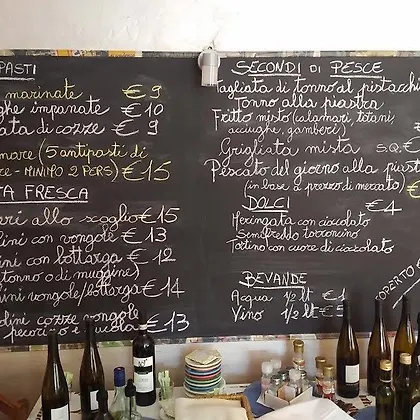 PASTI
marinate €9
ghe impanate €10
ata di cozze €9
mare (5 antipasti di
re - MINIMO 2 PERS) €15
TA FRESCA
eri allo scoglio €15
ini con vongole €13
ini con bottarga €12
tonno o di muggine)
ini vongole/bottarga €14
dini cozze vongole
pecorino e rucola €13
SECONDI DI PESCE
Tagliata di tonno al pistacchi
Tonno alla piastra
Fritto misto (calamari, totani,
acciughe, gamberi)
Grigliata mista S.Q. €
Pescato del giorno alla pias
(in base a prezzo di mercato) €
DOLCI €4
Meringata con cioccolato
Semifreddo torroncino
Tortino con cuore di cioccolato
BEVANDE
Acqua 1/2 lt €1
Vino 1/2 lt €5
COPERTO €